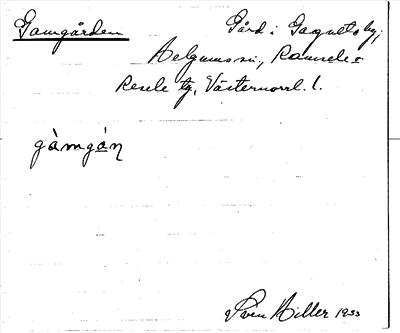 Gamgården
Gård i Gagnets by,
Helgums sn, Ramsele o
Resele tg, Västernorrl. l.
gàmgán
Sven Hiller 1933